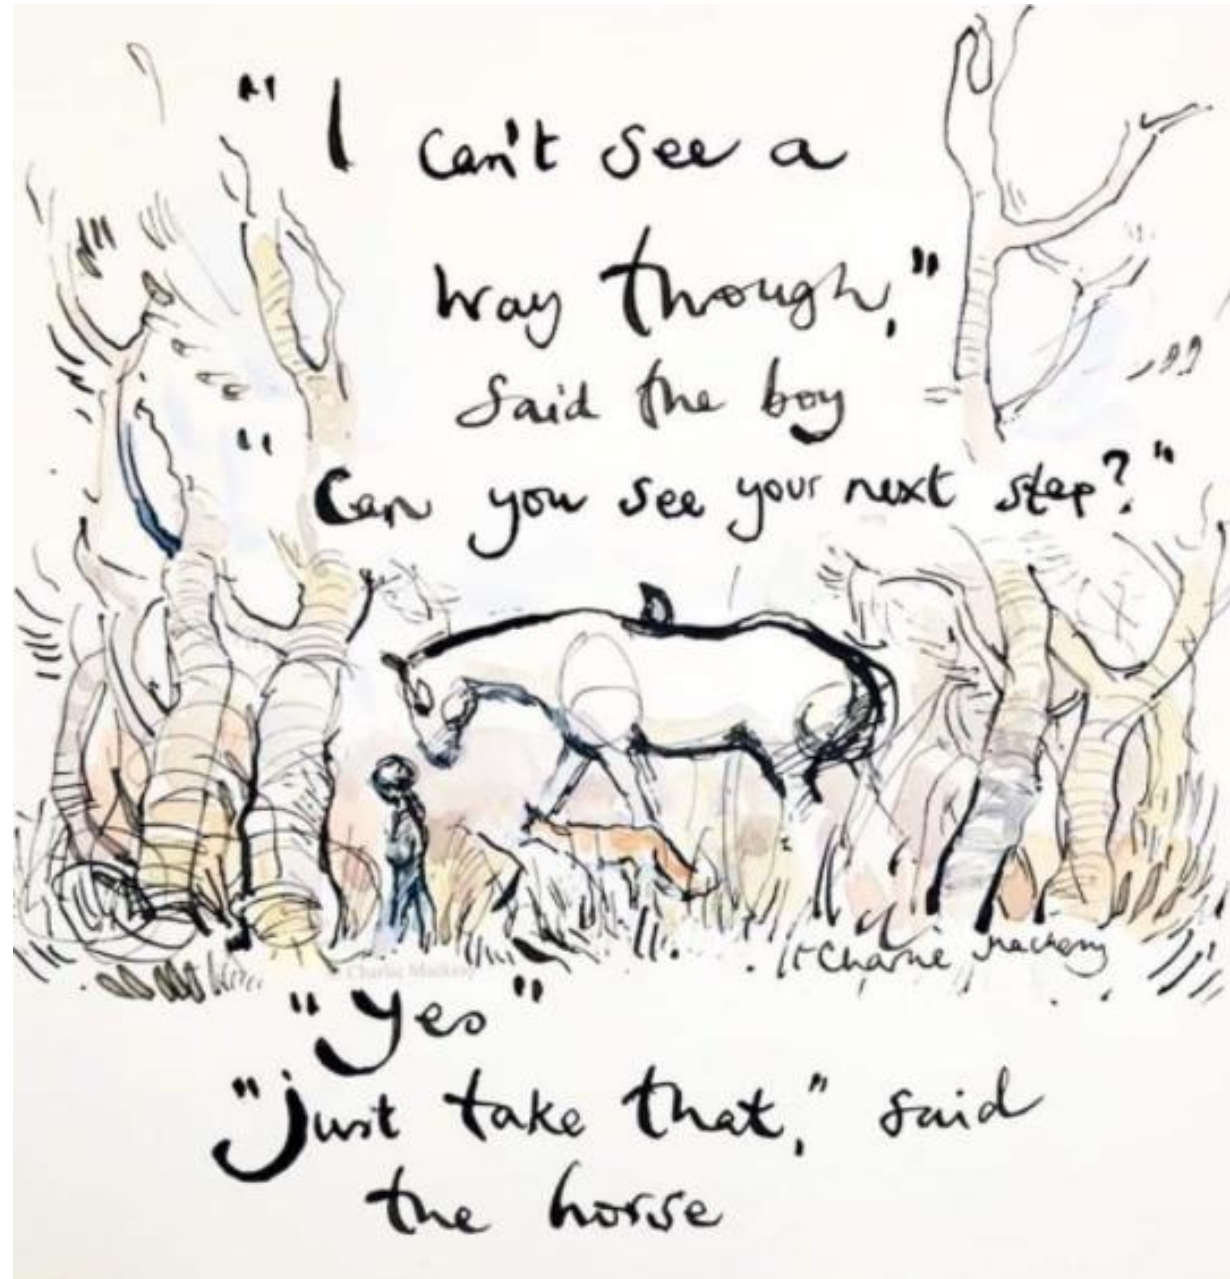 "I can't see a
way through,"
said the boy
"Can you see your next step?"
Charlie Mackesy
Charlie Mackesy
"Yes"
"just take that," said
the horse